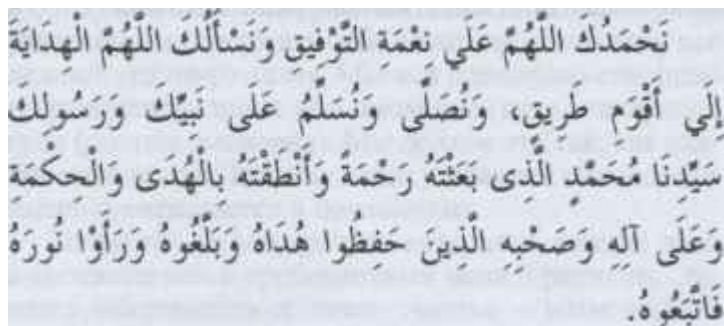 نَحْمَدُكَ اللَّهُمَّ عَلَي نِعْمَةِ التَّوْفِيقِ وَنَسْأَلُكَ اللَّهُمَّ الْهِدَايَةَ
إِلَي أَقْوَمِ طَرِيقٍ، وَنُصَلِّى وَنُسَلِّمُ عَلَى نَبِيِّكَ وَرَسُولِكَ
سَيِّدِنَا مُحَمَّدٍ الَّذِى بَعَثْتَهُ رَحْمَةً وَأَنْطَقْتَهُ بِالْهُدَى وَالْحِكْمَةِ
وَعَلَى آلِهِ وَصَحْبِهِ الَّذِينَ حَفِظُوا هُدَاهُ وَبَلَّغُوهُ وَرَأَوْا نُورَهُ
فَاتَّبَعُوهُ.